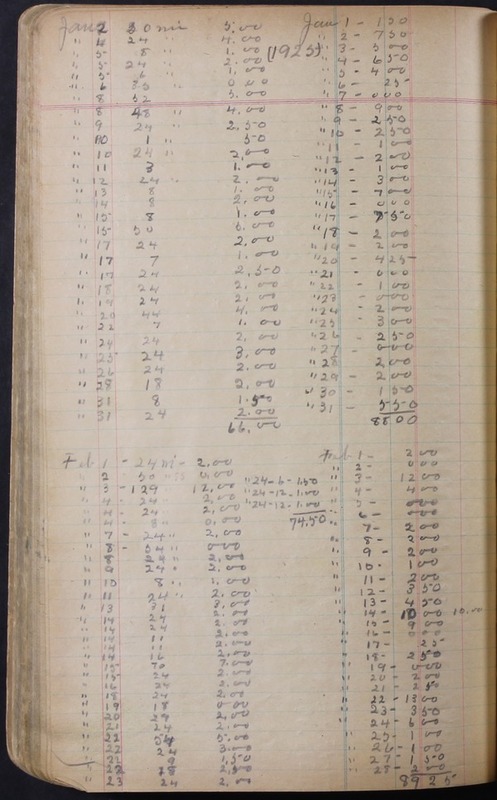 Jan 2 30 mi 5.00
" 4 24 " 4.00
" 5 8 " 1.00 (1925)
" 5 24 " 2.00
" 5 6 1.00
" 6 35 " 0.00
" 8 52 5.00
" 8 48 " 4.00
" 9 24 " 2.50
" 10 1 " 50
" 10 24 " 2.00
" 11 3 1.00
" 12 24 " 2.00
" 13 8 1.00
" 14 8 2.00
" 15 8 1.00
" 15 50 6.00
" 17 24 2.00
" 17 7 1.00
" 17 24 2.50
" 18 24 2.00
" 19 24 2.00
" 20 44 4.00
" 22 7 1.00
" 24 24 2.00
" 25 24 3.00
" 26 24 2.00
" 28 18 2.00
" 31 8 1.50
" 31 24 2.00
66.00
Jan 1 - 1 50
" 2 - 7 50
" 3 - 5 00
" 4 - 6 50
" 5 - 4 00
" 6 - 25
" 7 - 0 00
" 8 - 9 00
" 9 - 2 50
" 10 - 2 50
" 11 - 1 00
" 12 - 2 00
" 13 - 1 00
" 14 - 3 00
" 15 - 7 00
" 16 - 0 00
" 17 - 7 50
" 18 - 2 00
" 19 - 2 00
" 20 - 4 25
" 21 - 0 00
" 22 - 1 00
" 23 - 0 00
" 24 - 2 00
" 25 - 3 00
" 26 - 2 50
" 27 - 0 00
" 28 - 2 00
" 29 - 2 00
" 30 - 1 50
" 31 - 5 50
88 00
Feb 1 - 24 mi - 2.00
" 2 50 " 0.00
" 3 - 129 12.00 "24-6-1.50
" 4 - 24 2.00 "24-12-1.00
" 4 - 24 2.00 "24-12-1.00
" 4 8 " 0.00 74.50
" 7 - 24 " 2.00
" 8 - 54 " 0 00
" 8 24 " 2.00
" 9 24 " 2.00
" 10 8 " 1.00
" 11 24 " 2.00
" 13 31 3.00
" 14 24 2.00
" 14 24 2.00
" 14 11 2.00
" 14 16 2.00
" 15 70 7.00
" 15 24 2.00
" 16 24 2.00
" 18 24 2.00
" 19 18 0.00
" 20 29 2.00
" 21 24 2.00
" 22 54 5.00
" 22 24 3.00
" 22 9 1.50
" 22 18 2.50
" 23 24 2.00
Feb 1 - 2 00
" 2 - 0 00
" 3 - 12 00
" 4 - 4 00
" 5 - 0 00
6 - 2 00
7 - 2 00
" 8 - 2 00
" 9 - 2 00
" 10 - 1 00
" 11 - 2 00
" 12 - 3 50
" 13 - 4 50
" 14 - 10 00 10.00
" 15 - 9 00
" 16 - 0 00
" 17 - 25
" 18 - 2 50
" 19 - 0 00
" 20 - 2 00
" 21 - 2 50
" 22 - 13 00
" 23 - 3 50
" 24 - 6 00
" 25 - 1 00
" 26 - 1 00
" 27 - 1 50
" 28 - 2 00
89 25